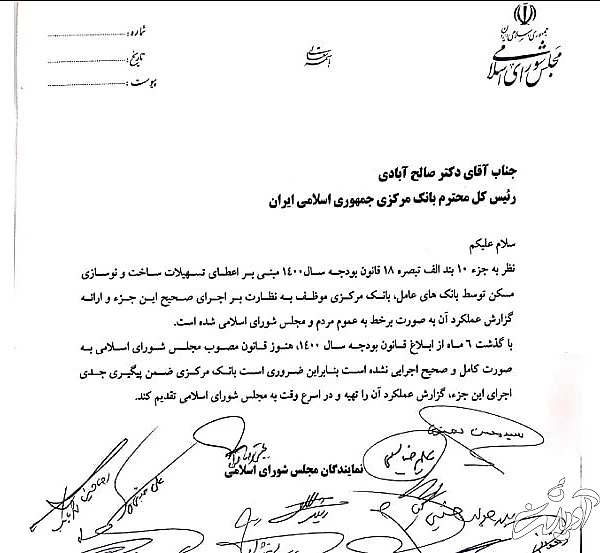 جمهوری اسلامی ایران
مجلس شورای اسلامی
شماره:
تاریخ:
پیوست:
جناب آقای دکتر صالح آبادی
رئیس کل محترم بانک مرکزی جمهوری اسلامی ایران
سلام علیکم
نظر به جزء ۱۰ بند الف تبصره ۱۸ قانون بودجه سال ۱۴۰۰ مبنی بر اعطای تسهیلات ساخت و نوسازی
مسکن توسط بانک های عامل، بانک مرکزی موظف به نظارت بر اجرای صحیح این جزء و ارائه
گزارش عملکرد آن به صورت برخط به عموم مردم و مجلس شورای اسلامی شده است.
با گذشت ۶ ماه از ابلاغ قانون بودجه سال ۱۴۰۰، هنوز قانون مصوب مجلس شورای اسلامی به
صورت کامل و صحیح اجرایی نشده است بنابراین ضروری است بانک مرکزی ضمن پیگیری جدی
اجرای این جزء، گزارش عملکرد آن را تهیه و در اسرع وقت به مجلس شورای اسلامی تقدیم کند.
نمایندگان مجلس شورای اسلامی